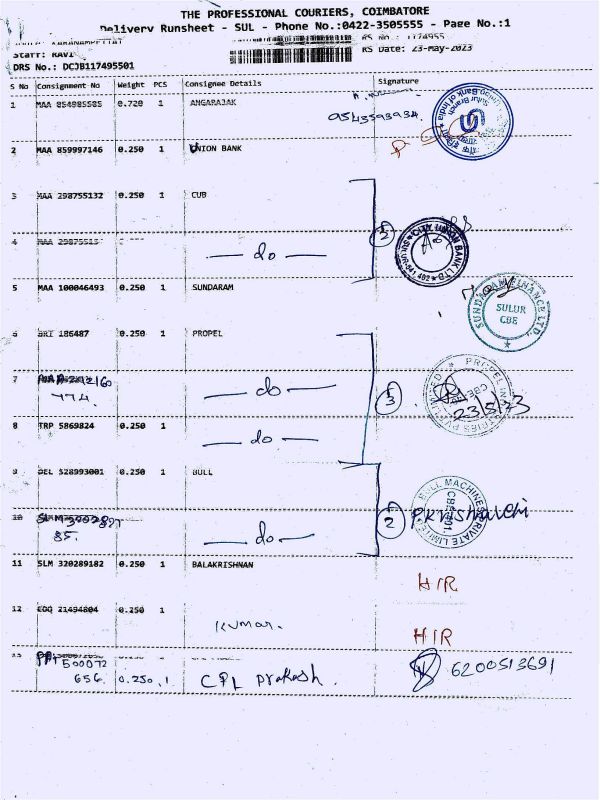 THE PROFESSIONAL COURIERS, COIMBATORE
Delivery Runsheet - SUL - Phone No.:0422-3505555 - Page No.:1
RS No.: 1174955
Staff: RAVI RS Date: 23-May-2023
DRS No.: DCJB117495501
S No Consignment No Weight PCS Consignee Details Signature
1 MAA 854985585 0.720 1 ANGARAJAK
9543593934
Union Bank of India
Sulur Branch
2 MAA 859997146 0.250 1 UNION BANK
3 MAA 298755132 0.250 1 CUB
2
CITY UNION BANK LTD
SULUR-641 402
4 do
5 MAA 100046493 0.250 1 SUNDARAM
SUNDARAM FINANCE LTD.
SULUR
CBE
6 BRI 186487 0.250 1 PROPEL
7 do
3
23/5/23
8 TRP 5869824 0.250 1 do
9 DEL 528993001 0.250 1 BULL
BULL MACHINES PRIVATE LIMITED
10 do
85.
2
11 SLM 320289182 0.250 1 BALAKRISHNAN
HIR
12 EOQ 21494804 0.250 1
Kumar.
HIR
13 500072
656. 0.250 1 CPL Prakash.
6200513691